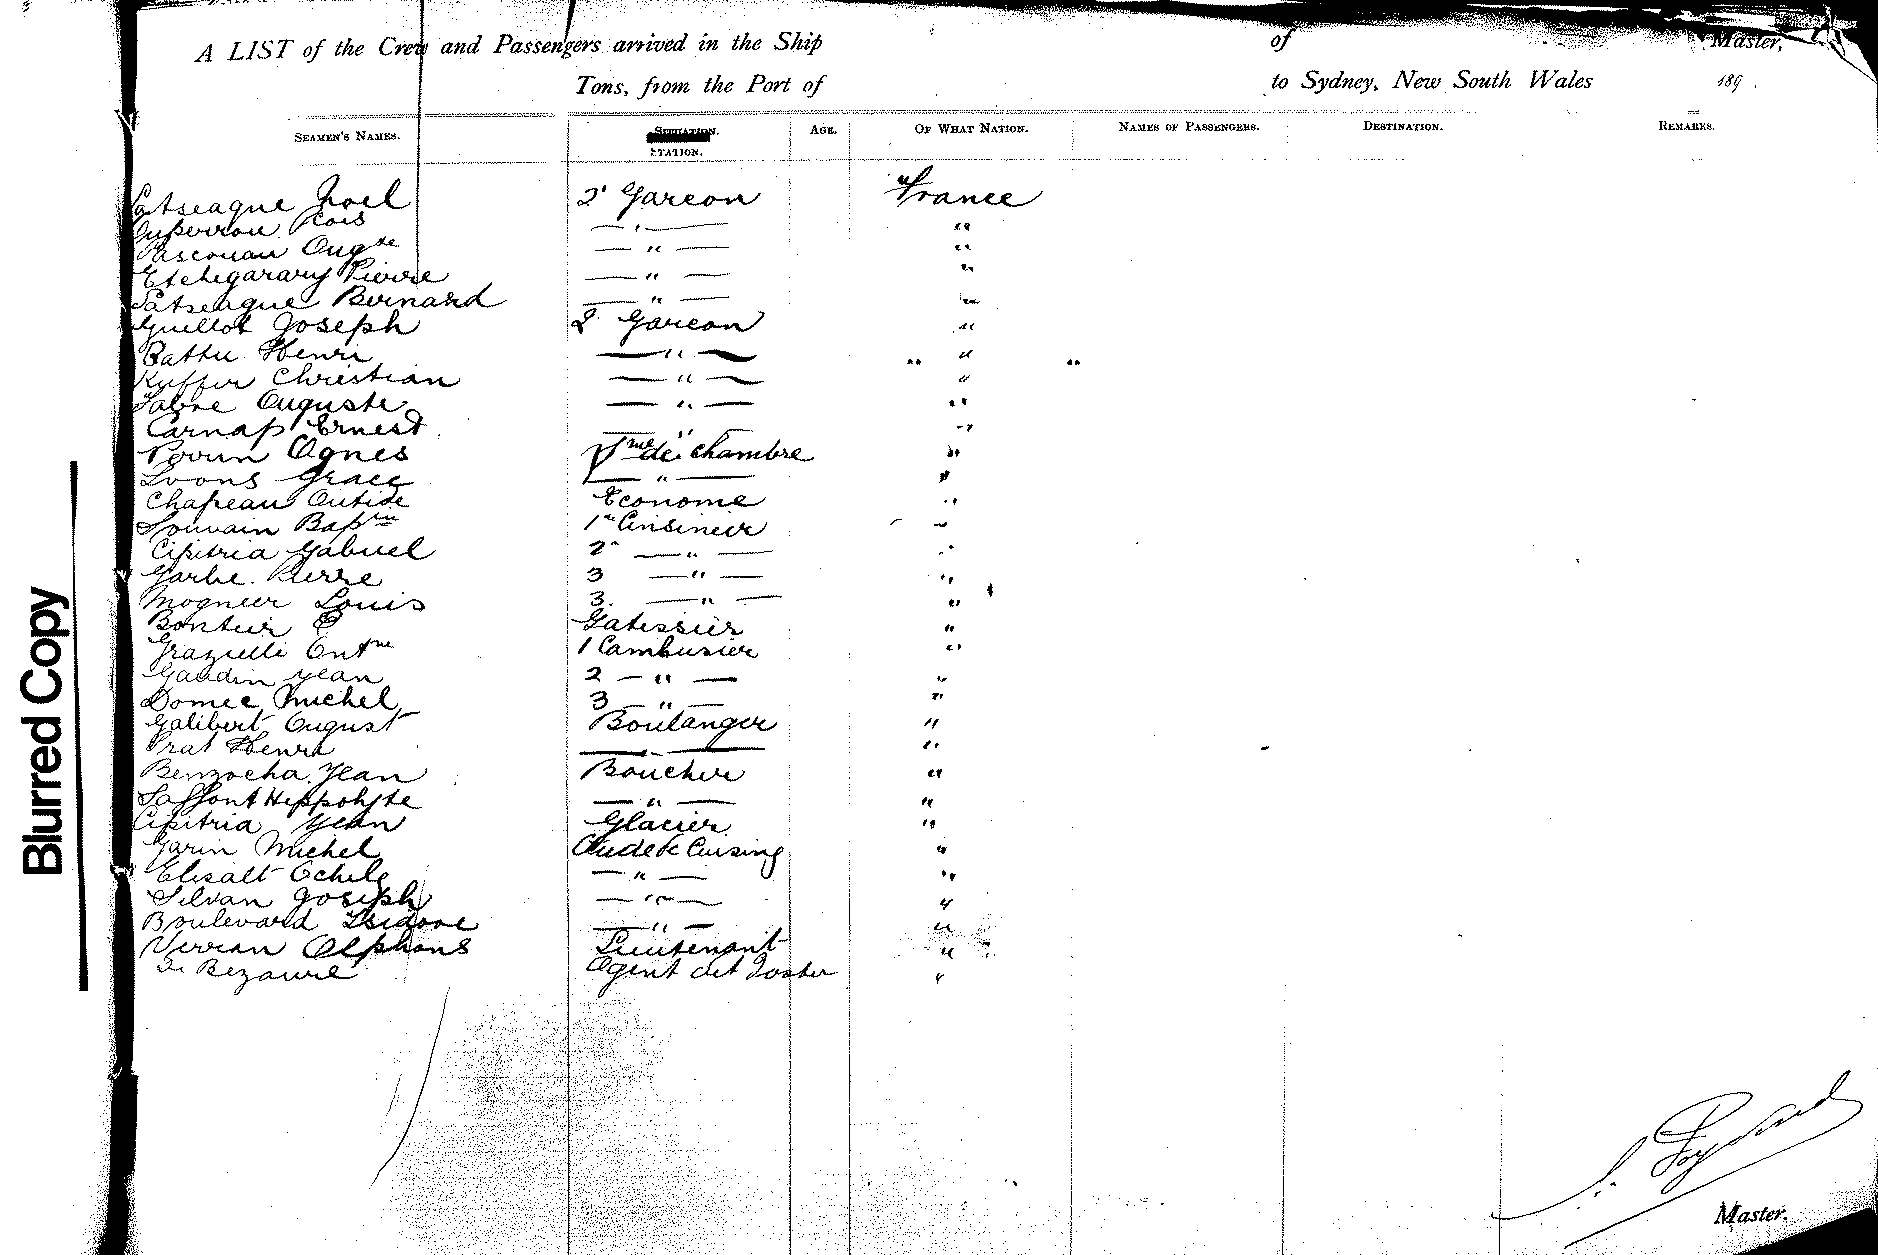 A LIST of the Crew and Passengers arrived in the Ship of Master,
Tons, from the Port of to Sydney, New South Wales 189 .
SEAMEN'S NAMES. SITUATION. STATION. AGE. OF WHAT NATION. NAMES OF PASSENGERS. DESTINATION. REMARKS.
Latseague Noel 2' Garcon France
Duperrou — " — "
Pasconau — " — "
Etchegarary Pierre — " — "
Latseague Bernard — " — "
Guillot Joseph 2 Garcon "
Battu Henri — " — " " "
Kuffer Christian — " — "
Fabre Auguste — " — "
Carnap Ernest — " — "
Perrin Agnes de chambre "
Lyons Grace — " — "
Chapeau Econome "
Louvain 1er Cuisinier "
Cipitria Gabriel 2" — " — "
Garbe Pierre 3 — " — "
Mogneer Louis 3 — " — "
Bonteir "
Grazielli 1 Cambusier "
Gaudin Jean 2 — " — "
Domec Michel 3 — " — "
Galibert August Boulanger "
Prat Henri — " — "
Benrocha Jean Boucher "
Laffont Hippolyte — " — "
Cipitria Jean Glacier "
Garin Michel "
Elisalt Achile — " — "
Silvan Joseph — " — "
Boulevard Isidore — " — "
Verran Alphons Lieutenant "
De Bezaure Agent "
Master.
Blurred Copy